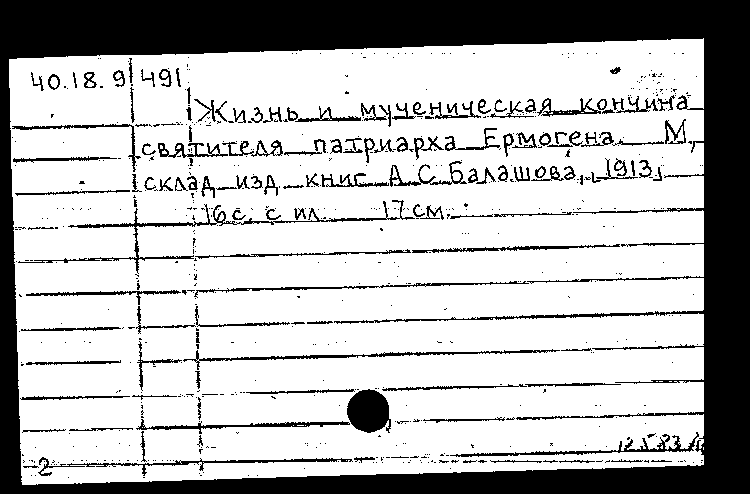 40.18.9 491
Жизнь и мученическая кончина
святителя патриарха Ермогена. М,
склад изд. книг А С Балашова, 1913,
16 с. с ил. 17 см.
2